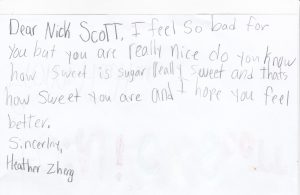 Dear Nick Scott, I feel so bad for
you but you are really nice do you know
how sweet is sugar really sweet and thats
how sweet you are and I hope you feel
better.
Sincerlny,
Heather Zheng